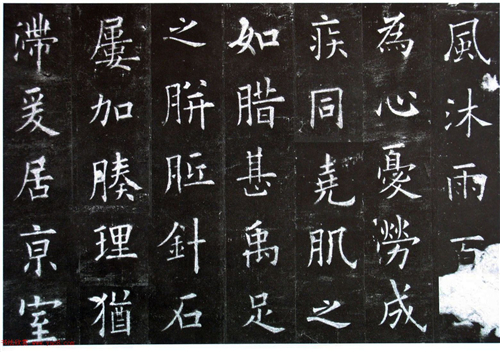 風沐雨
為心憂勞成
疾同堯肌之
如腊甚禹足
之胼胝針石
屢加腠理猶
滯爰居亰室